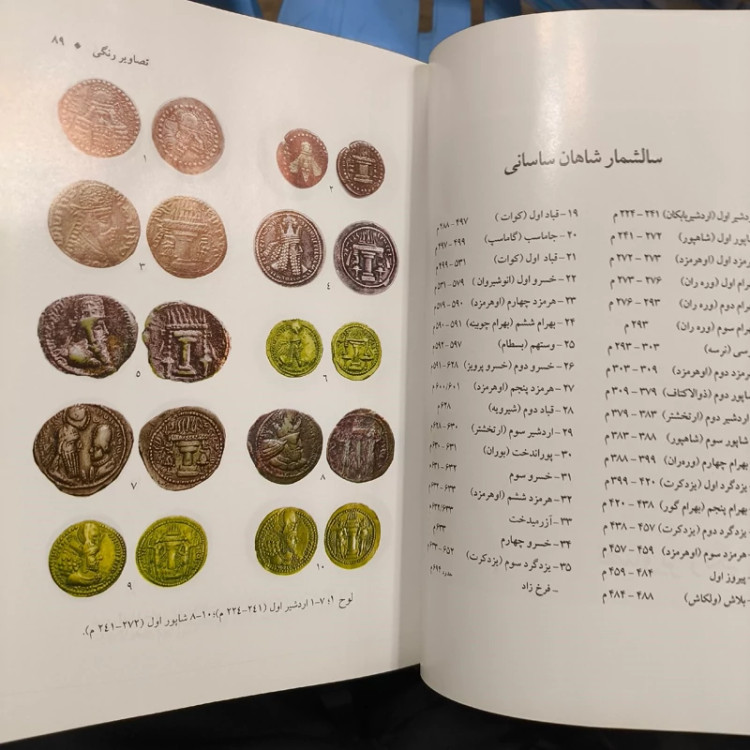 سالشمار شاهان ساسانی
ردشیر اول (اردشیربابکان) ۲۲۴ – ۲۴۱ م
اپور اول (شاهپور) ۲۴۱ – ۲۷۲ م
رمزد اول (اوهرمزد) ۲۷۲ – ۲۷۳ م
هرام اول (وره ران) ۲۷۳ – ۲۷۶ م
هرام دوم (وره ران) ۲۷۶ – ۲۹۳ م
هرام سوم (وره ران) ۲۹۳ م
رسی (نرسه) ۲۹۳ – ۳۰۳ م
رمزد دوم (اوهرمزد) ۳۰۳ – ۳۰۹ م
شاپور دوم (ذوالاکتاف) ۳۰۹ – ۳۷۹ م
ردشیر دوم (ارتخشتر) ۳۷۹ – ۳۸۳ م
شاپور سوم (شاهپور) ۳۸۳ – ۳۸۸ م
بهرام چهارم (وره‌ران) ۳۸۸ – ۳۹۹ م
یزدگرد اول (یزدکرت) ۳۹۹ – ۴۲۰ م
بهرام پنجم (بهرام گور) ۴۲۰ – ۴۳۸ م
یزدگرد دوم (یزدکرت) ۴۳۸ – ۴۵۷ م
هرمزد سوم (اوهرمزد) ۴۵۷ – ۴۵۹ م
پیروز اول ۴۵۹ – ۴۸۴ م
- بلاش (ولکاش) ۴۸۴ – ۴۸۸ م
۱۹- قباد اول (کوات) ۲۸۸ – ۴۹۷ م
۲۰- جاماسب (گاماسب) ۴۹۷ – ۴۹۹ م
۲۱- قباد اول (کوات) ۴۹۹ – ۵۳۱ م
۲۲- خسرو اول (انوشیروان) ۵۳۱ – ۵۷۹ م
۲۳- هرمزد چهارم (اوهرمزد) ۵۷۹ – ۵۹۰ م
۲۴- بهرام ششم (بهرام چوبینه) ۵۹۰ – ۵۹۱ م
۲۵- وستهم (بسطام) ۵۹۲ – ۵۹۷ م
۲۶- خسرو دوم (خسرو پرویز) ۵۹۱ – ۶۲۸ م
۲۷- هرمزد پنجم (اوهرمزد) ۶۰۰/۶۰۱ م
۲۸- قباد دوم (شیرویه) ۶۲۸ م
۲۹- اردشیر سوم (ارتخشتر) ۶۲۸ – ۶۳۰ م
۳۰- پوراندخت (بوران) ۶۳۰ – ۶۳۱ م
۳۱- خسرو سوم
۳۲- هرمزد ششم (اوهرمزد)
۳۳- آزرمیدخت
۳۴- خسرو چهارم ۶۳۳ م
۳۵- یزدگرد سوم (یزدکرت)
- فرخ زاد
تصاویر رنگی ❋ ۸۹
۱
۲
۳
۴
۵
۶
۷
۸
۹
۱۰
لوح ۱؛ ۱-۷ اردشیر اول (۲۲۴-۲۴۱ م)؛ ۸-۱۰ شاپور اول (۲۴۱-۲۷۲ م).